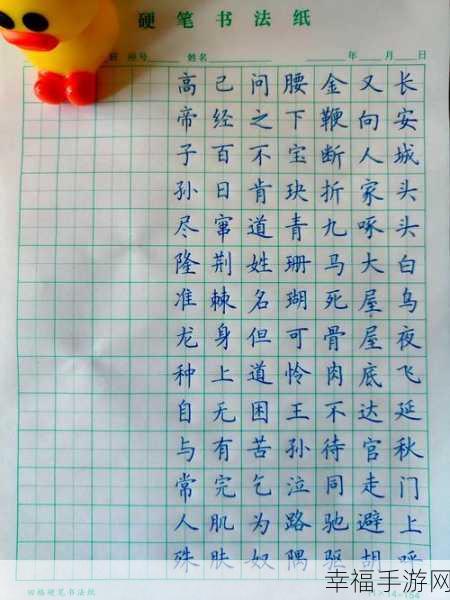 硬笔书法纸
班 座号 姓名 年 月 日
长安城头头白乌夜飞延秋门上呼
又向人家啄大屋屋底达官走避胡
金鞭断折九马死骨肉不待同驰驱
腰下宝玦青珊瑚可怜王孙泣路隅
问之不肯道姓名但道困苦乞为奴
已经百日窜荆棘身上无有完肌肤
高帝子孙尽隆准龙种自与常人殊
田格硬笔书法纸
幸福手游网